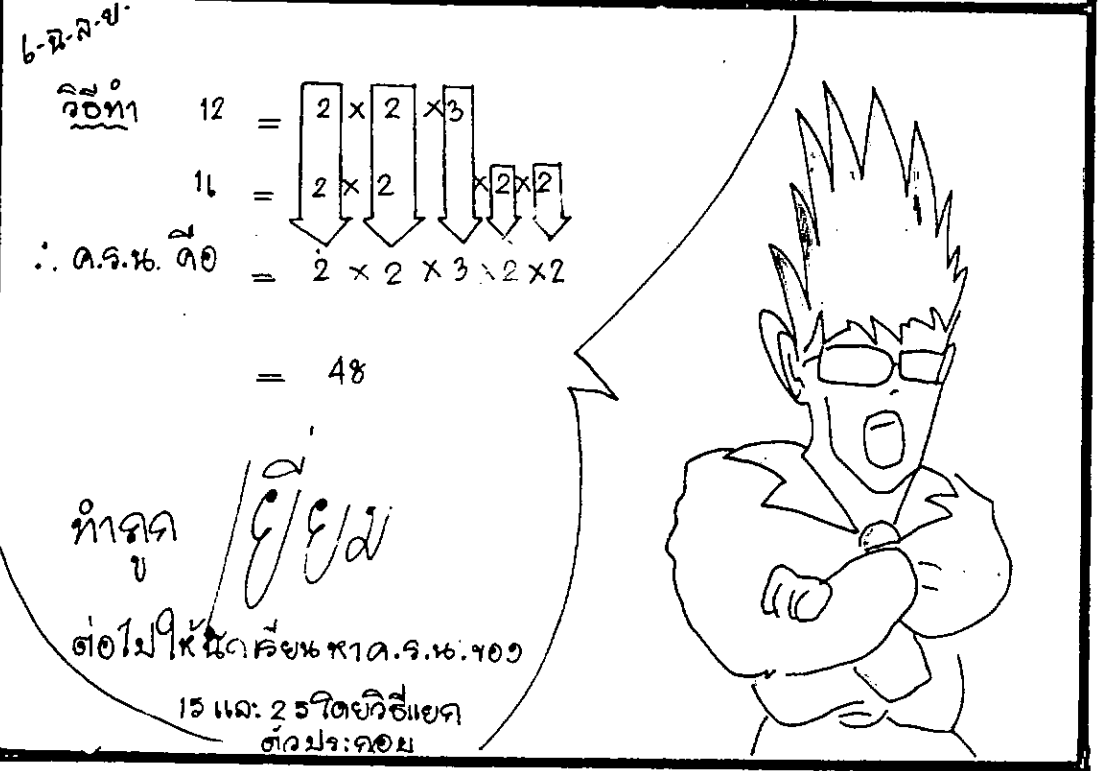 เฉลย
วิธีทำ 12 = 2 × 2 × 3
16 = 2 × 2 × 2 × 2
∴ ค.ร.น. คือ = 2 × 2 × 3 × 2 × 2
= 48
ทำถูก เยี่ยม
ต่อไปให้นักเรียนหา ค.ร.น. ของ
15 และ 25 โดยวิธีแยก
ตัวประกอบ